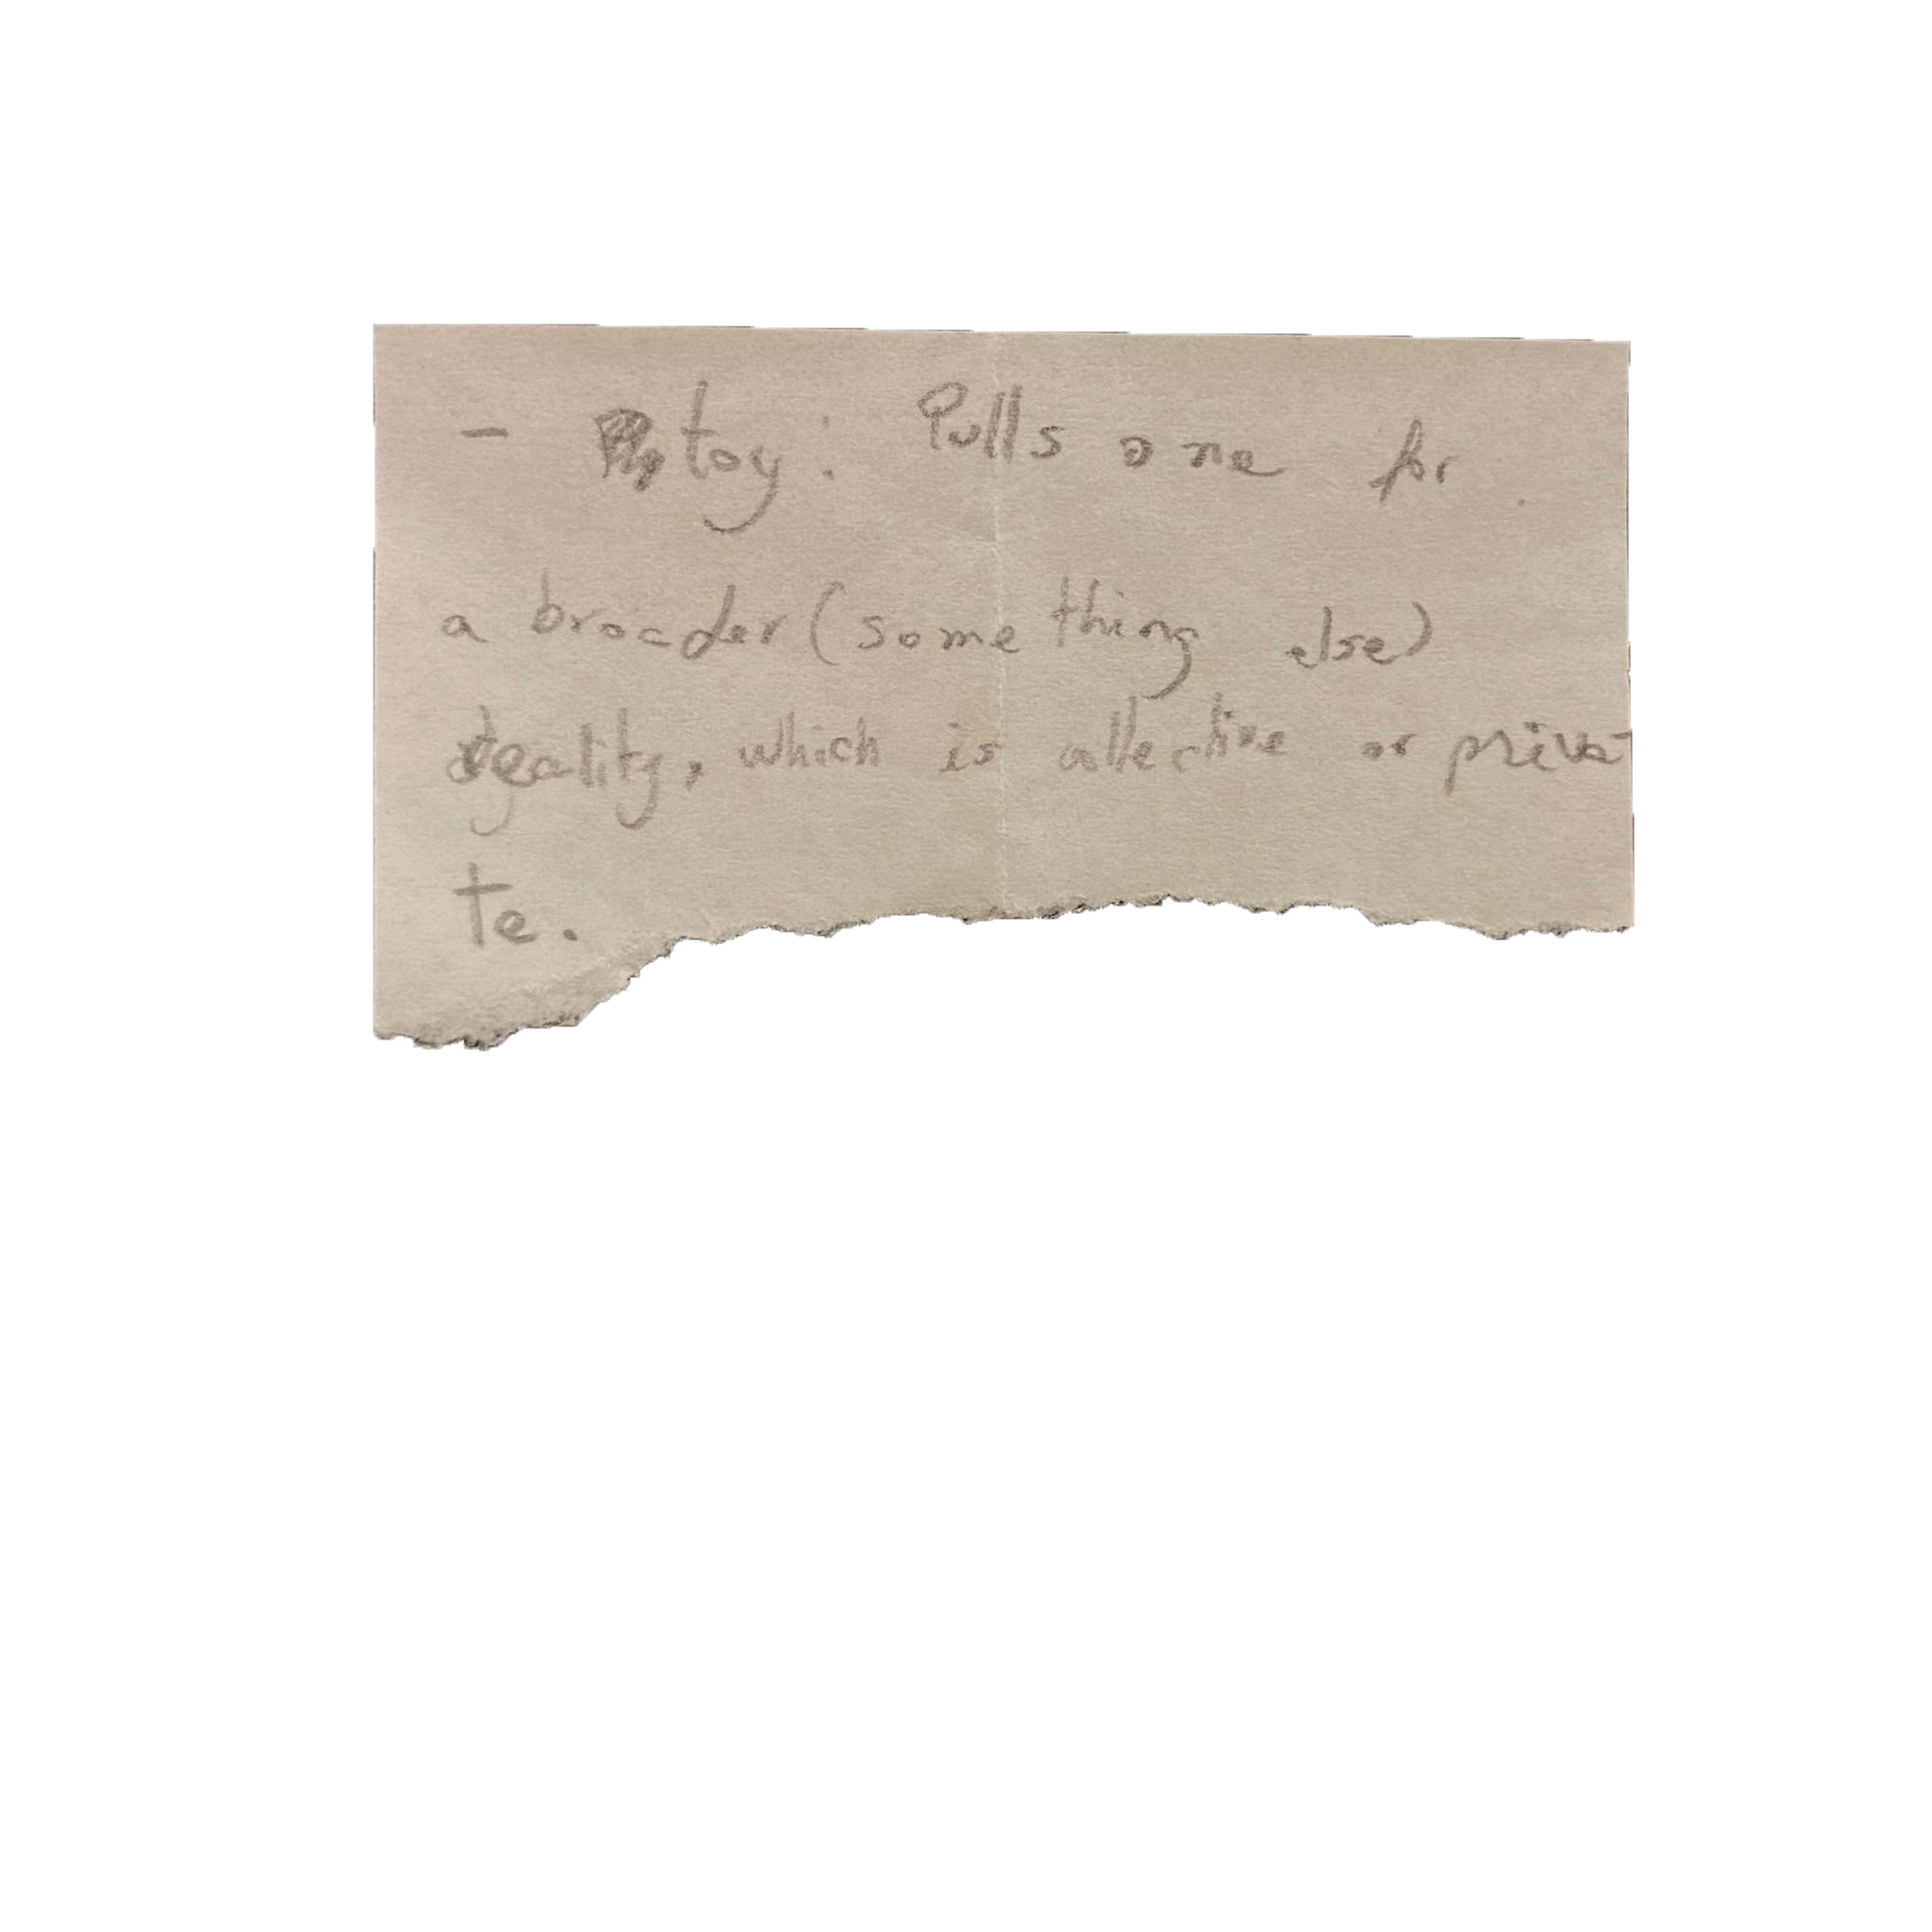 - toy: Pulls one for
a broader (something else)
reality, which is collective or priva-
te.